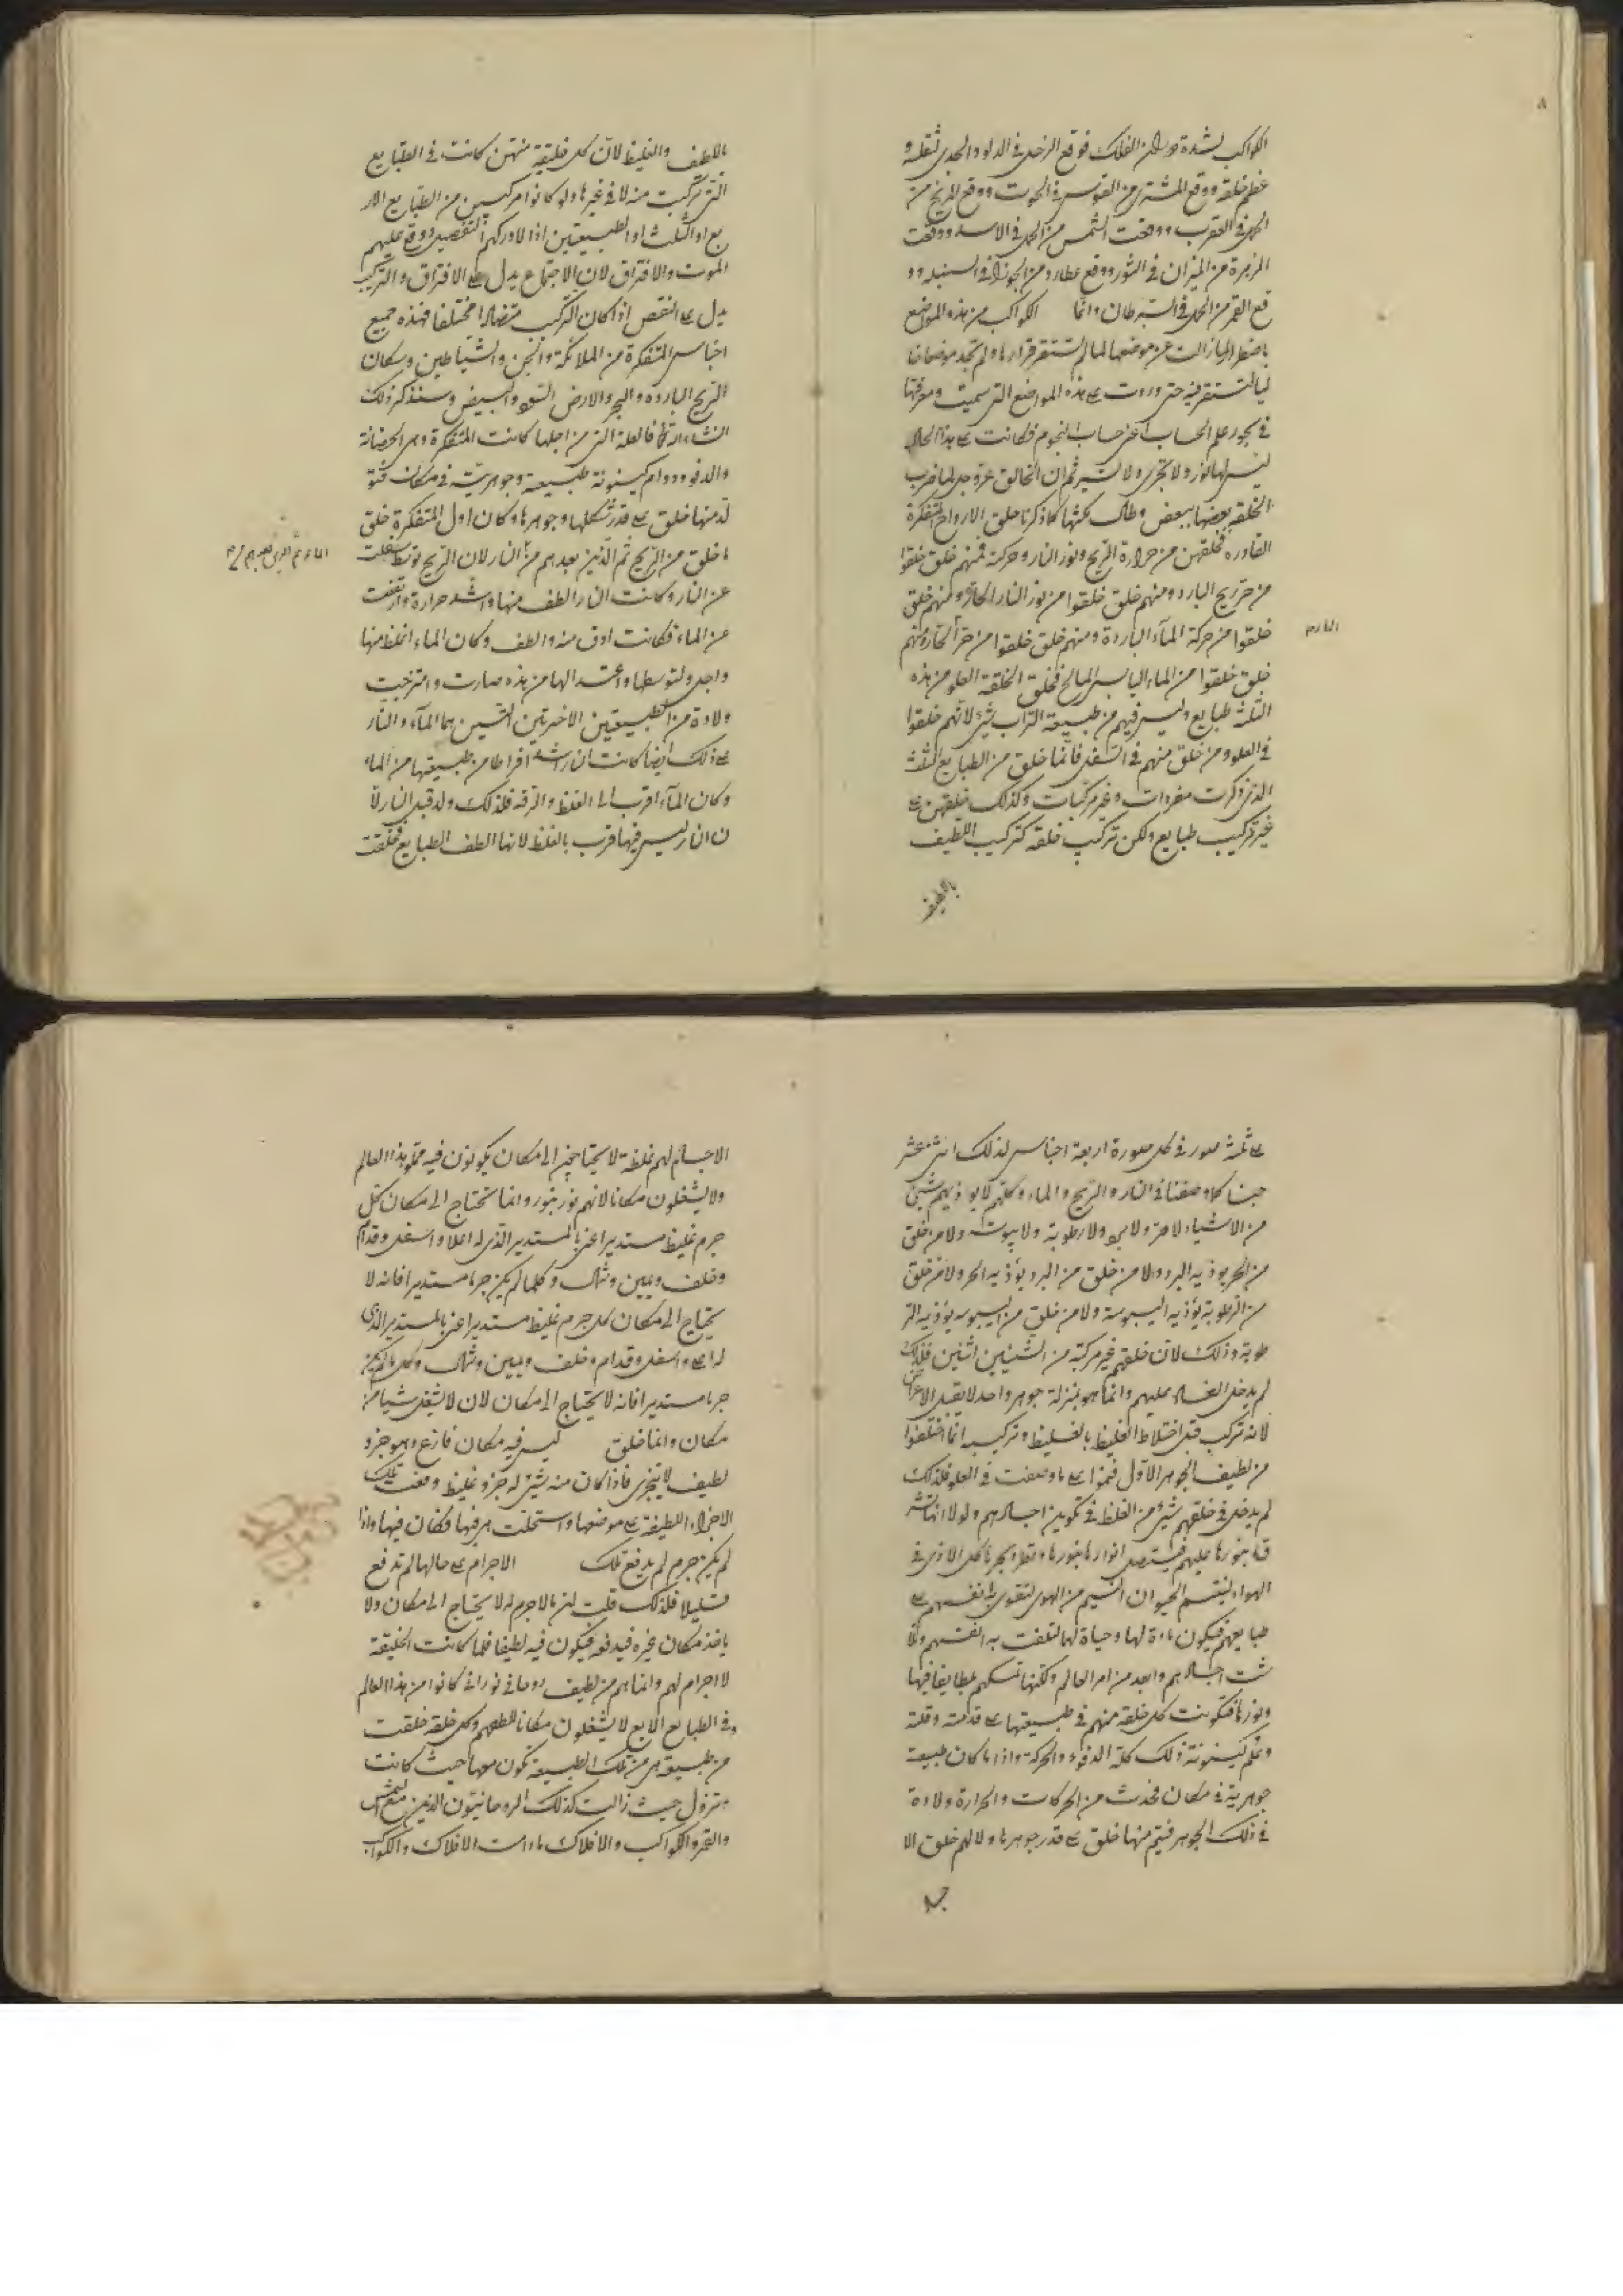 ٨
الكواكب لشدة دوران الفلك فوقع الزحل في الدلو والجدي لثقله و
عظم خلقه ووقع المشتري من القوس في الحوت ووقع المريخ من
الحمل في العقرب ووقعت الشمس من الحمل في الاسد ووقعت
الزهرة من الميزان في الثور ووقع عطارد من الجوزا في السنبله وو
قع القمر من الحمل في السرطان وانما الكواكب من هذه المواضع
باضطرابها زالت عن موضعها لما لم تستقر قرارها ولم تجد موضعا
ليا لتستقر فيه حتى وردت على هذه المواضع التي سميت ومعرفتها
في علم الحساب اعني حساب النجوم فكانت على هذا الحال
ليس لها نور ولا تجري ولا تسير ثم ان الخالق عز وجل لما ضرب
الخلقه بعضها ببعض وطال مكثها كما ذكرنا خلق الارواح المتفكرة
القادره فخلقهن من حرارة الريح ونور النار وحركة فمنهم خلق خلقوا
من حر ريح البارد ومنهم خلق خلقوا من نور النار الحارة ومنهم خلق
خلقوا من حركة الماء الباردة ومنهم خلق خلقوا من حر الحار ومنهم
خلق خلقوا من الماء اليابس المالح فخلق الخلقة العلو من هذه
الثلث طبايع وليس فيهم من طبيعة التراب شئ لانهم خلقوا
في العلو ومن خلق منهم في السفل فانما خلق من الطبايع الثلث
الذي ذكرت مفردات وغير مركبات وكذلك خلقهن على
غير تركيب طبايع ولكن تركيب خلقه كتركيب اللطيف
باللطيف
باللطف والغليظ لان كل خليقة منهن كانت في الطبايع
التي تركبت منه لا في غيرها ولو كانوا مركبين من الطبايع الار
بع او الثلث او الطبيعتين اذا لادركهم التفصيل ووقع عليهم
الموت والافتراق لان الاجتماع يدل على الافتراق والتركيب
يدل على النقص اذا كان التركيب متضادا مختلفا فهذه جميع
اجناس المتفكرة من الملائكة والجن والشياطين وسكان
الريح البارده والبحر والارض السود والبيض وسنذكر ذلك
انشاء الله تعالى فالعلة التي من اجلها كانت المتفكرة وهي
والدفو ودوام كينونة طبيعية وجوهرية في مكان فتو
لد منها خلق على قدر شكلها وجوهرها وكان اول المتفكرة خلق
ما خلق من الريح ثم الذين بعدهم من النار لان الريح توسطت
عن النار وكانت النار الطف منها واشد حرارة وارتفعت
عن الماء فكانت ادق منه والطف وكان الماء اغلظ منها
واجل ولتوسطها واعتدالها من هذه صارت وامتزجت
ولادة من الطبيعتين الاخرتين اللتين هما الماء والنار
على ذلك ايضا كانت النار اشد افراطا من طبيعتها من الماء
وكان الماء اقرب الى الغلظ والرقه فلذلك ولد قبل النار لا
ن النار ليس فيها قرب بالغلظ لانها الطف الطبايع فخلقت
على ثلثة صور في كل صورة اربعة اجناس لذلك اثني عشر
جنسا كما وصفنا في النار والريح والماء وكلهم لا يوذيهم شئ
من الاشياء لا حر ولا برد ولا رطوبة ولا يبوسة ولا من خلق
من الحر يوذيه البرد ولا من خلق من البرد يؤذيه الحر ولا من خلق
من الرطوبة يؤذيه اليبوسة ولا من خلق من اليبوسه يؤذيه الر
طوبة وذلك لان خلقهم غير مركبة من الشيئين اثنين فلذلك
لم يدخل الفساد عليهم وانما هو بمنزلة جوهر واحد لا يقبل الاعراض
لانه تركب قبل اختلاط الغليظ بالغليظ وتركيب انما اختلفوا
من لطيف الجوهر الاول على ما وصفت في العلو فلذلك
لم يدخل في خلقهم شئ من الغلظ في تكوين اجسادهم ولولا انها تشر
ق بنورها عليهم
الهواء لينسم الحيوان النسيم من الهوى لتقوى به انفسهم على
طبايعهم فيكون مادة لها وحياة لها لتلفت به انفسهم
اجسادهم وابعد من امر العالم ولكنها تمسكهم
ونورها فتكونت كل خلقه منهم في طبيعتها على قدمته وقلته
كينونة ذلك كله الدفوء والحركة واذا ما كان طبيعة
جوهرية في مكان فحدث من الحركات والحرارة ولادة
في ذلك الجوهر فيتم منها خلق على قدر جوهرها ولا لهم خلق الا
جسا
الاجسام لهم غلظة لا يحتاجون الى مكان يكونون فيه مملو بهذا العالم
ولا يشغلون مكانا لانهم نور بنور وانما تحتاج الى مكان كل
جرم غليظ مستدير اعني بالمستدير الذي له اعلا واسفل وقدام
وخلف ويمين وشمال وكلما لم يكن جرما مستديرا فانه لا
يحتاج الى مكان كل جرم غليظ مستدير اعني بالمستدير الذي
له اعلى واسفل وقدام وخلف ويمين وشمال وكل ما لم يكن
جرما مستديرا فانه لا يحتاج الى مكان لان لا يشغل شيا من
مكان وانما خلق ليس فيه مكان فازع وهو جزو
لطيف لا يتجزى فاذا كان منه شئ له جزو غليظ دفعت تلك
الاجزاء اللطيفة على موضعها واستحلت هي فيها فكان فيها واذا
لم يكن جرم لم يدفع تلك الاجرام على حالها لم تدفع
قليلا فلذلك قلت ان ما لا جرم له لا يحتاج الى مكان ولا
ياخذ مكان غيره فيدفعه فيكون فيه لطيفا فلما كانت الخليقة
لا اجرام لهم وانما هم من لطيف روحاني نوراني كانوا من هذا العالم
وفي الطبايع الاربع لا يشغلون مكانا للطفهم وكل خلقة خلقت
من طبيعة هي من تلك الطبيعة تكون معها حيث كانت
وتزول حيث زالت كذلك الروحانيون الذين مع الشمس
والقمر والكواكب والافلاك مادامت الافلاك والكواكب